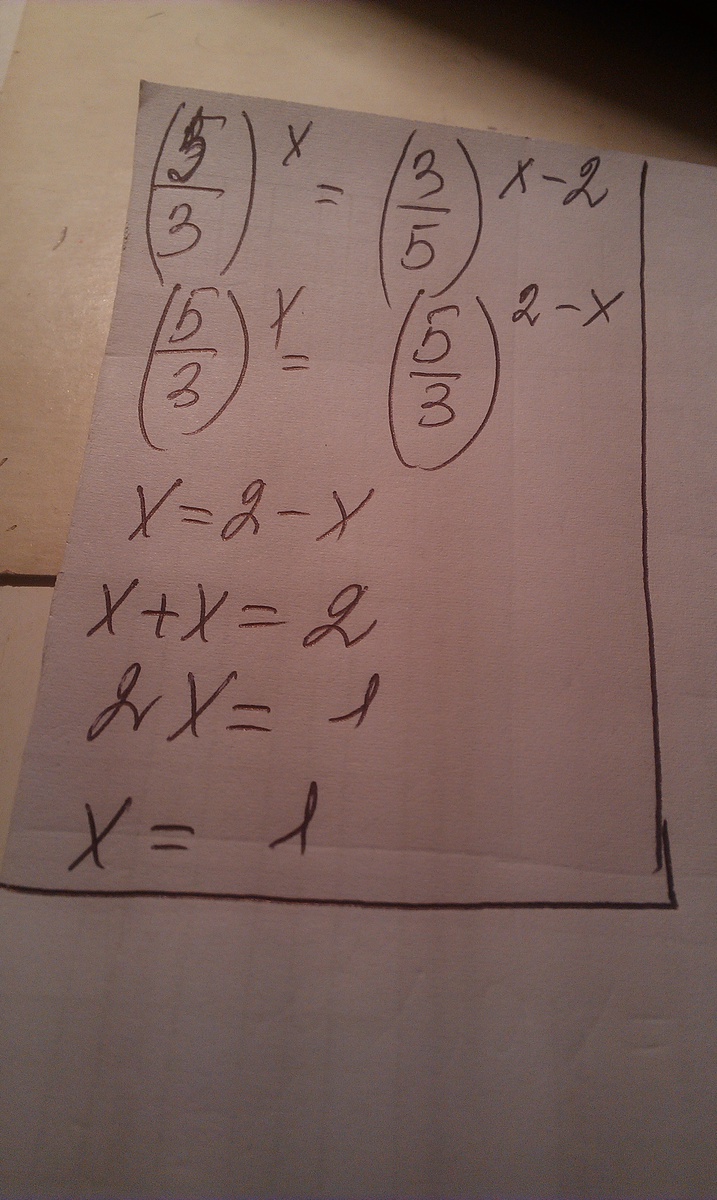 (5/3)^x = (3/5)^x-2
(5/3)^x = (5/3)^2-x
x=2-x
x+x=2
2x=1
x=1